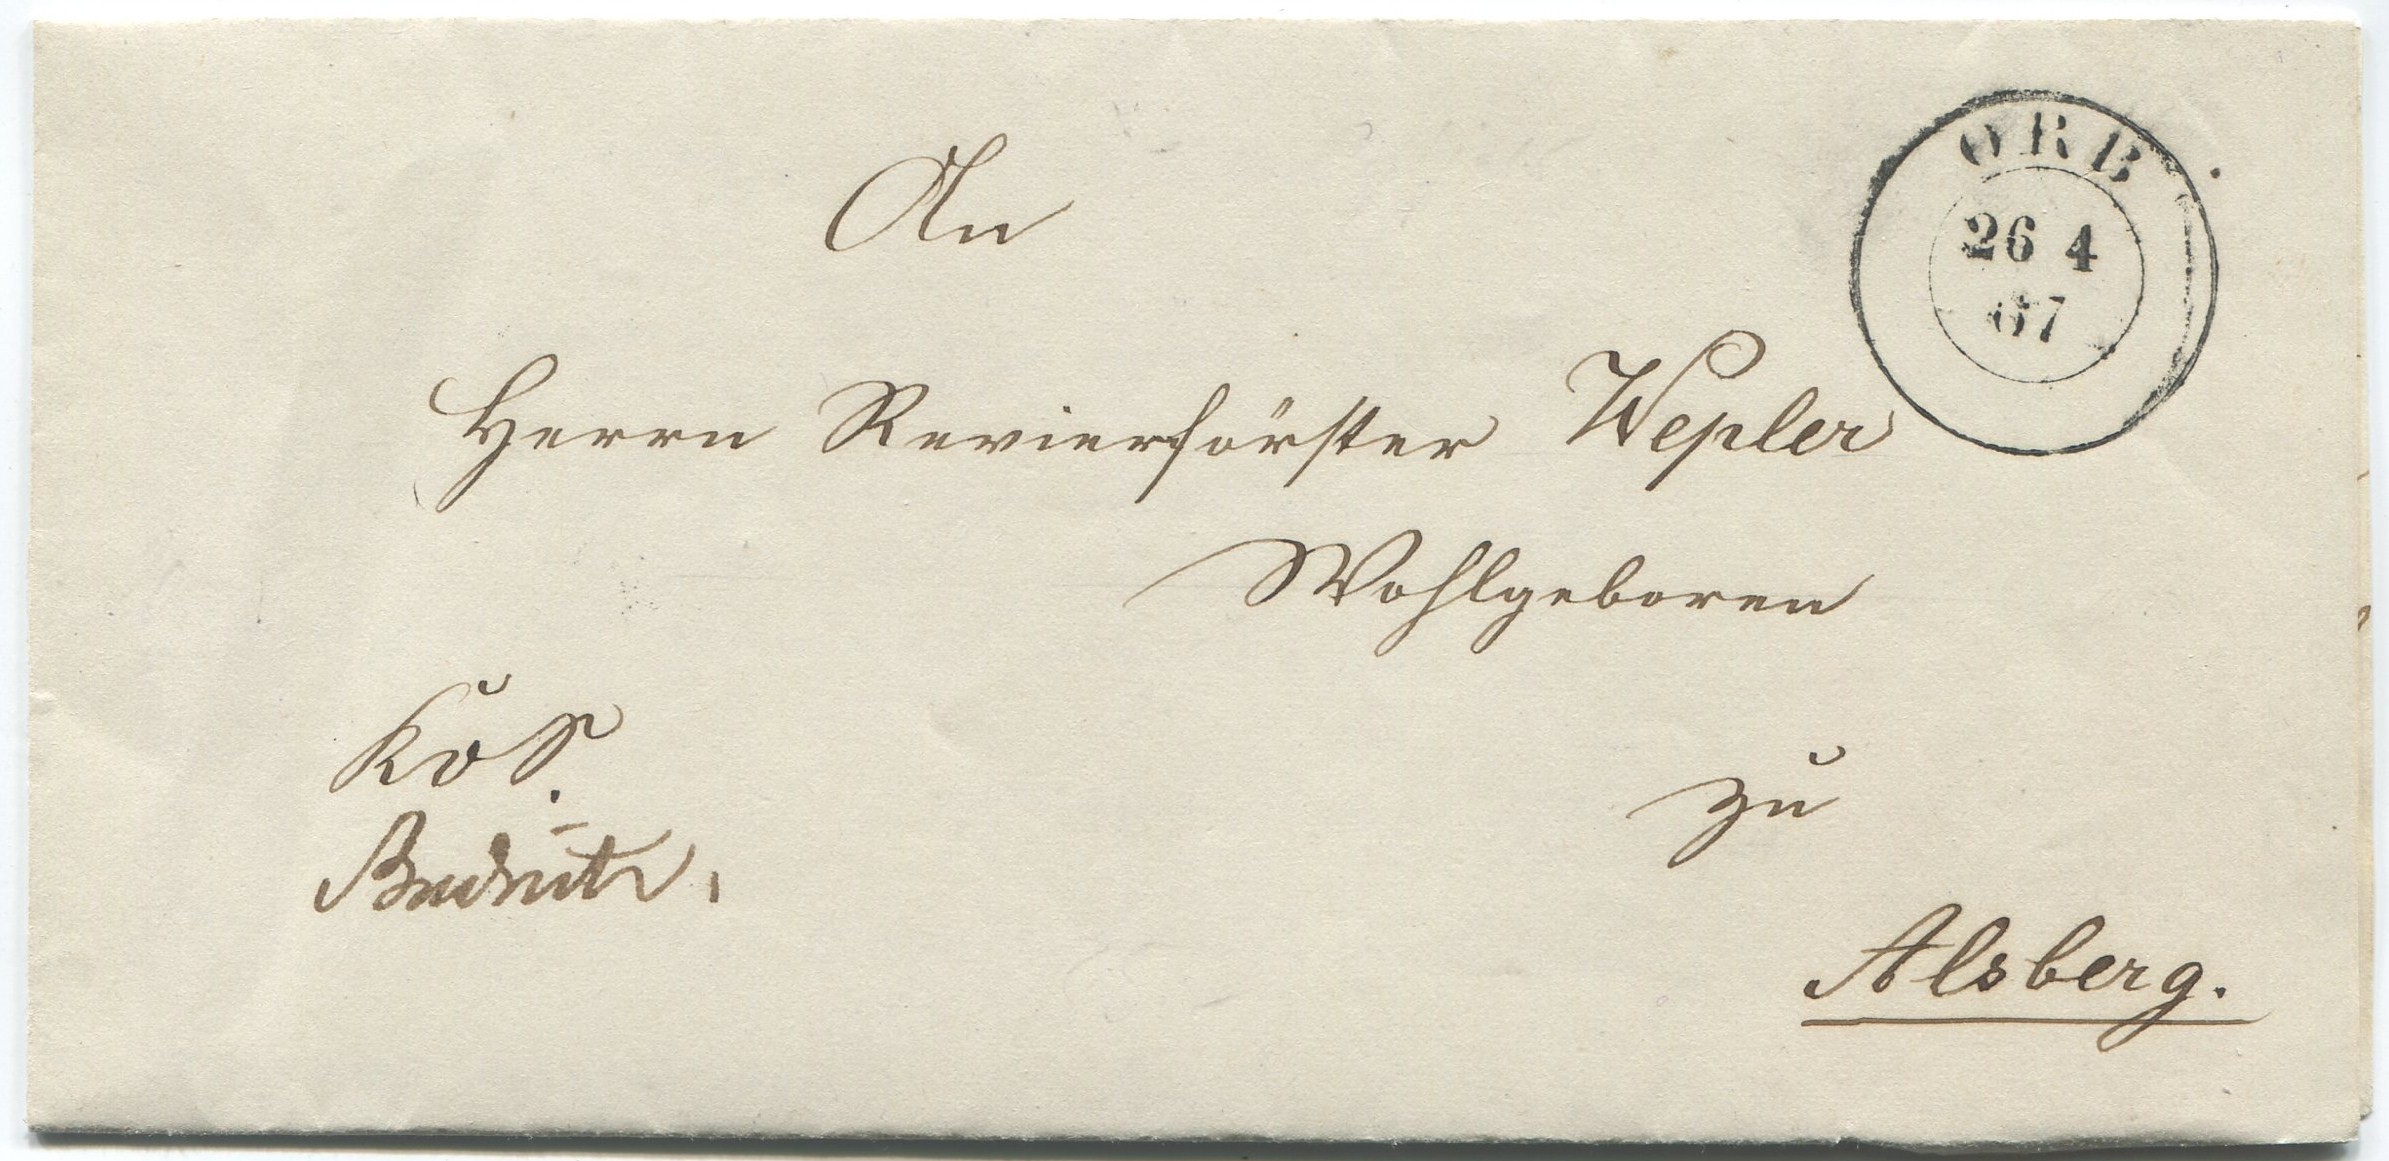 ORB
26 4
67
An
Herrn Revierförster Wepler
Wohlgeboren
zu
Alsberg.